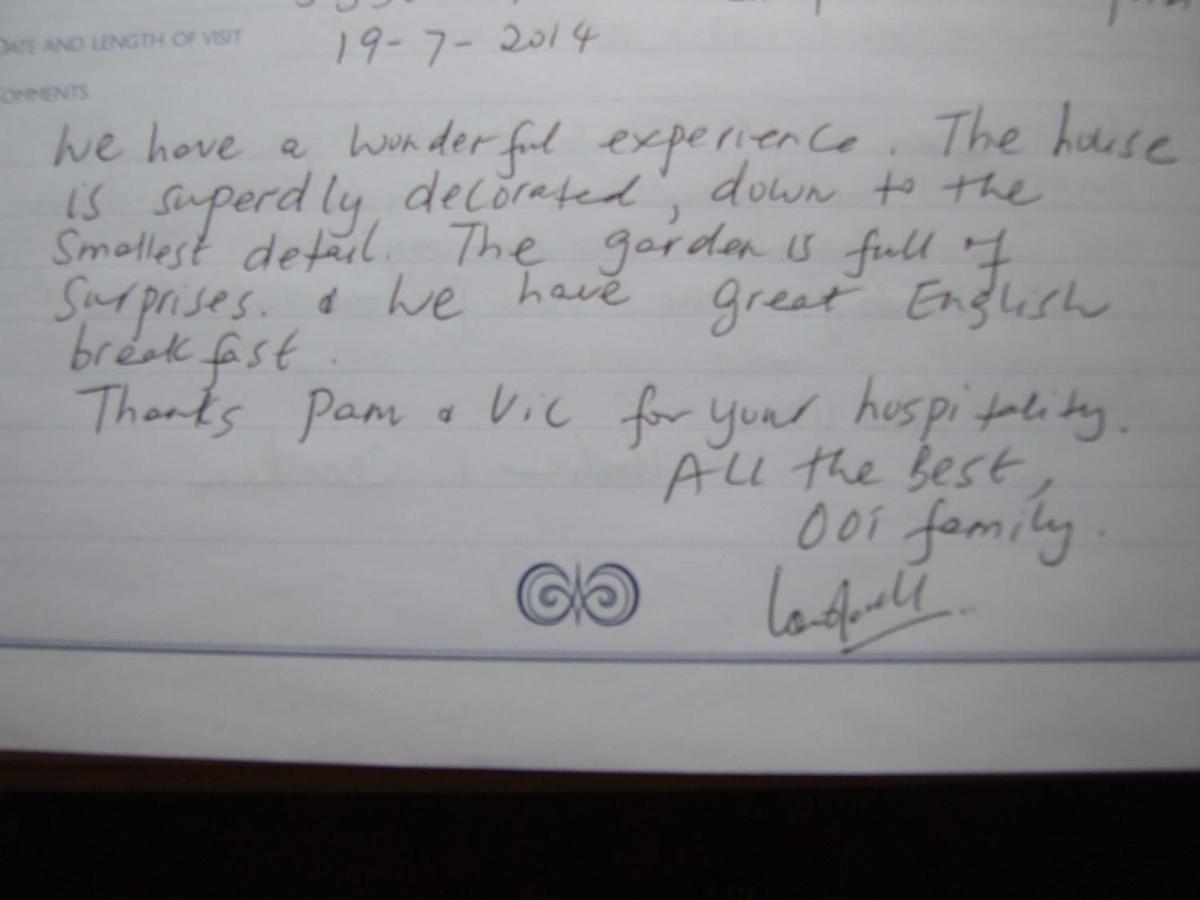 DATE AND LENGTH OF VISIT 19-7-2014
COMMENTS
We have a wonderful experience. The house
is superdly decorated, down to the
Smallest detail. The garden is full of
Surprises. & We have great English
breakfast.
Thanks Pam & Vic for your hospitality.
All the Best,
OOI family.